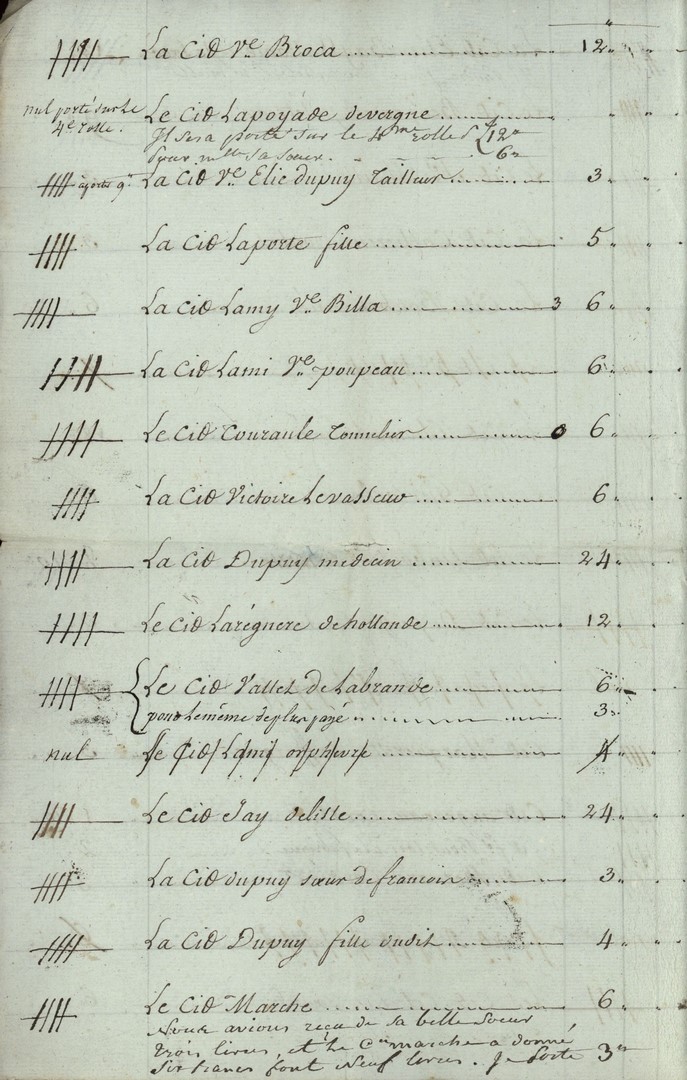 La Cid Ve Broca 12 "
nul porté sur le 4e rolle. Le Cid Lapoyade devergne " "
Il sera porté sur le 4me rolle 12"
Pour mlle sa soeur. 6"
La Cid Ve Elie dupuy Tailleur 3 "
La Cid Laporte fille 5 "
La Cid Lamy Ve Billa 3 6 "
La Cid Lami Ve poupeau 6 "
Le Cid Couraule Tonnelier 0 6 "
La Cid Victoire Levasseur 6 "
La Cid Dupuy medecin 24 "
Le Cid Larégnere dehollande 12 "
Le Cid Vallet de Labrande 6 "
pour le même de plus payé 3 "
nul Le Cid Lamy orphevre 4 "
Le Cid Jay delisle 24 "
La Cid dupuy soeur de francois 3 "
La Cid Dupuy fille dudit 4 "
Le Cid Marche 6 "
Nous avions reçu de sa belle Soeur
trois livres, et le Cen marche a donné
six francs font neuf livres. Je porte 3"